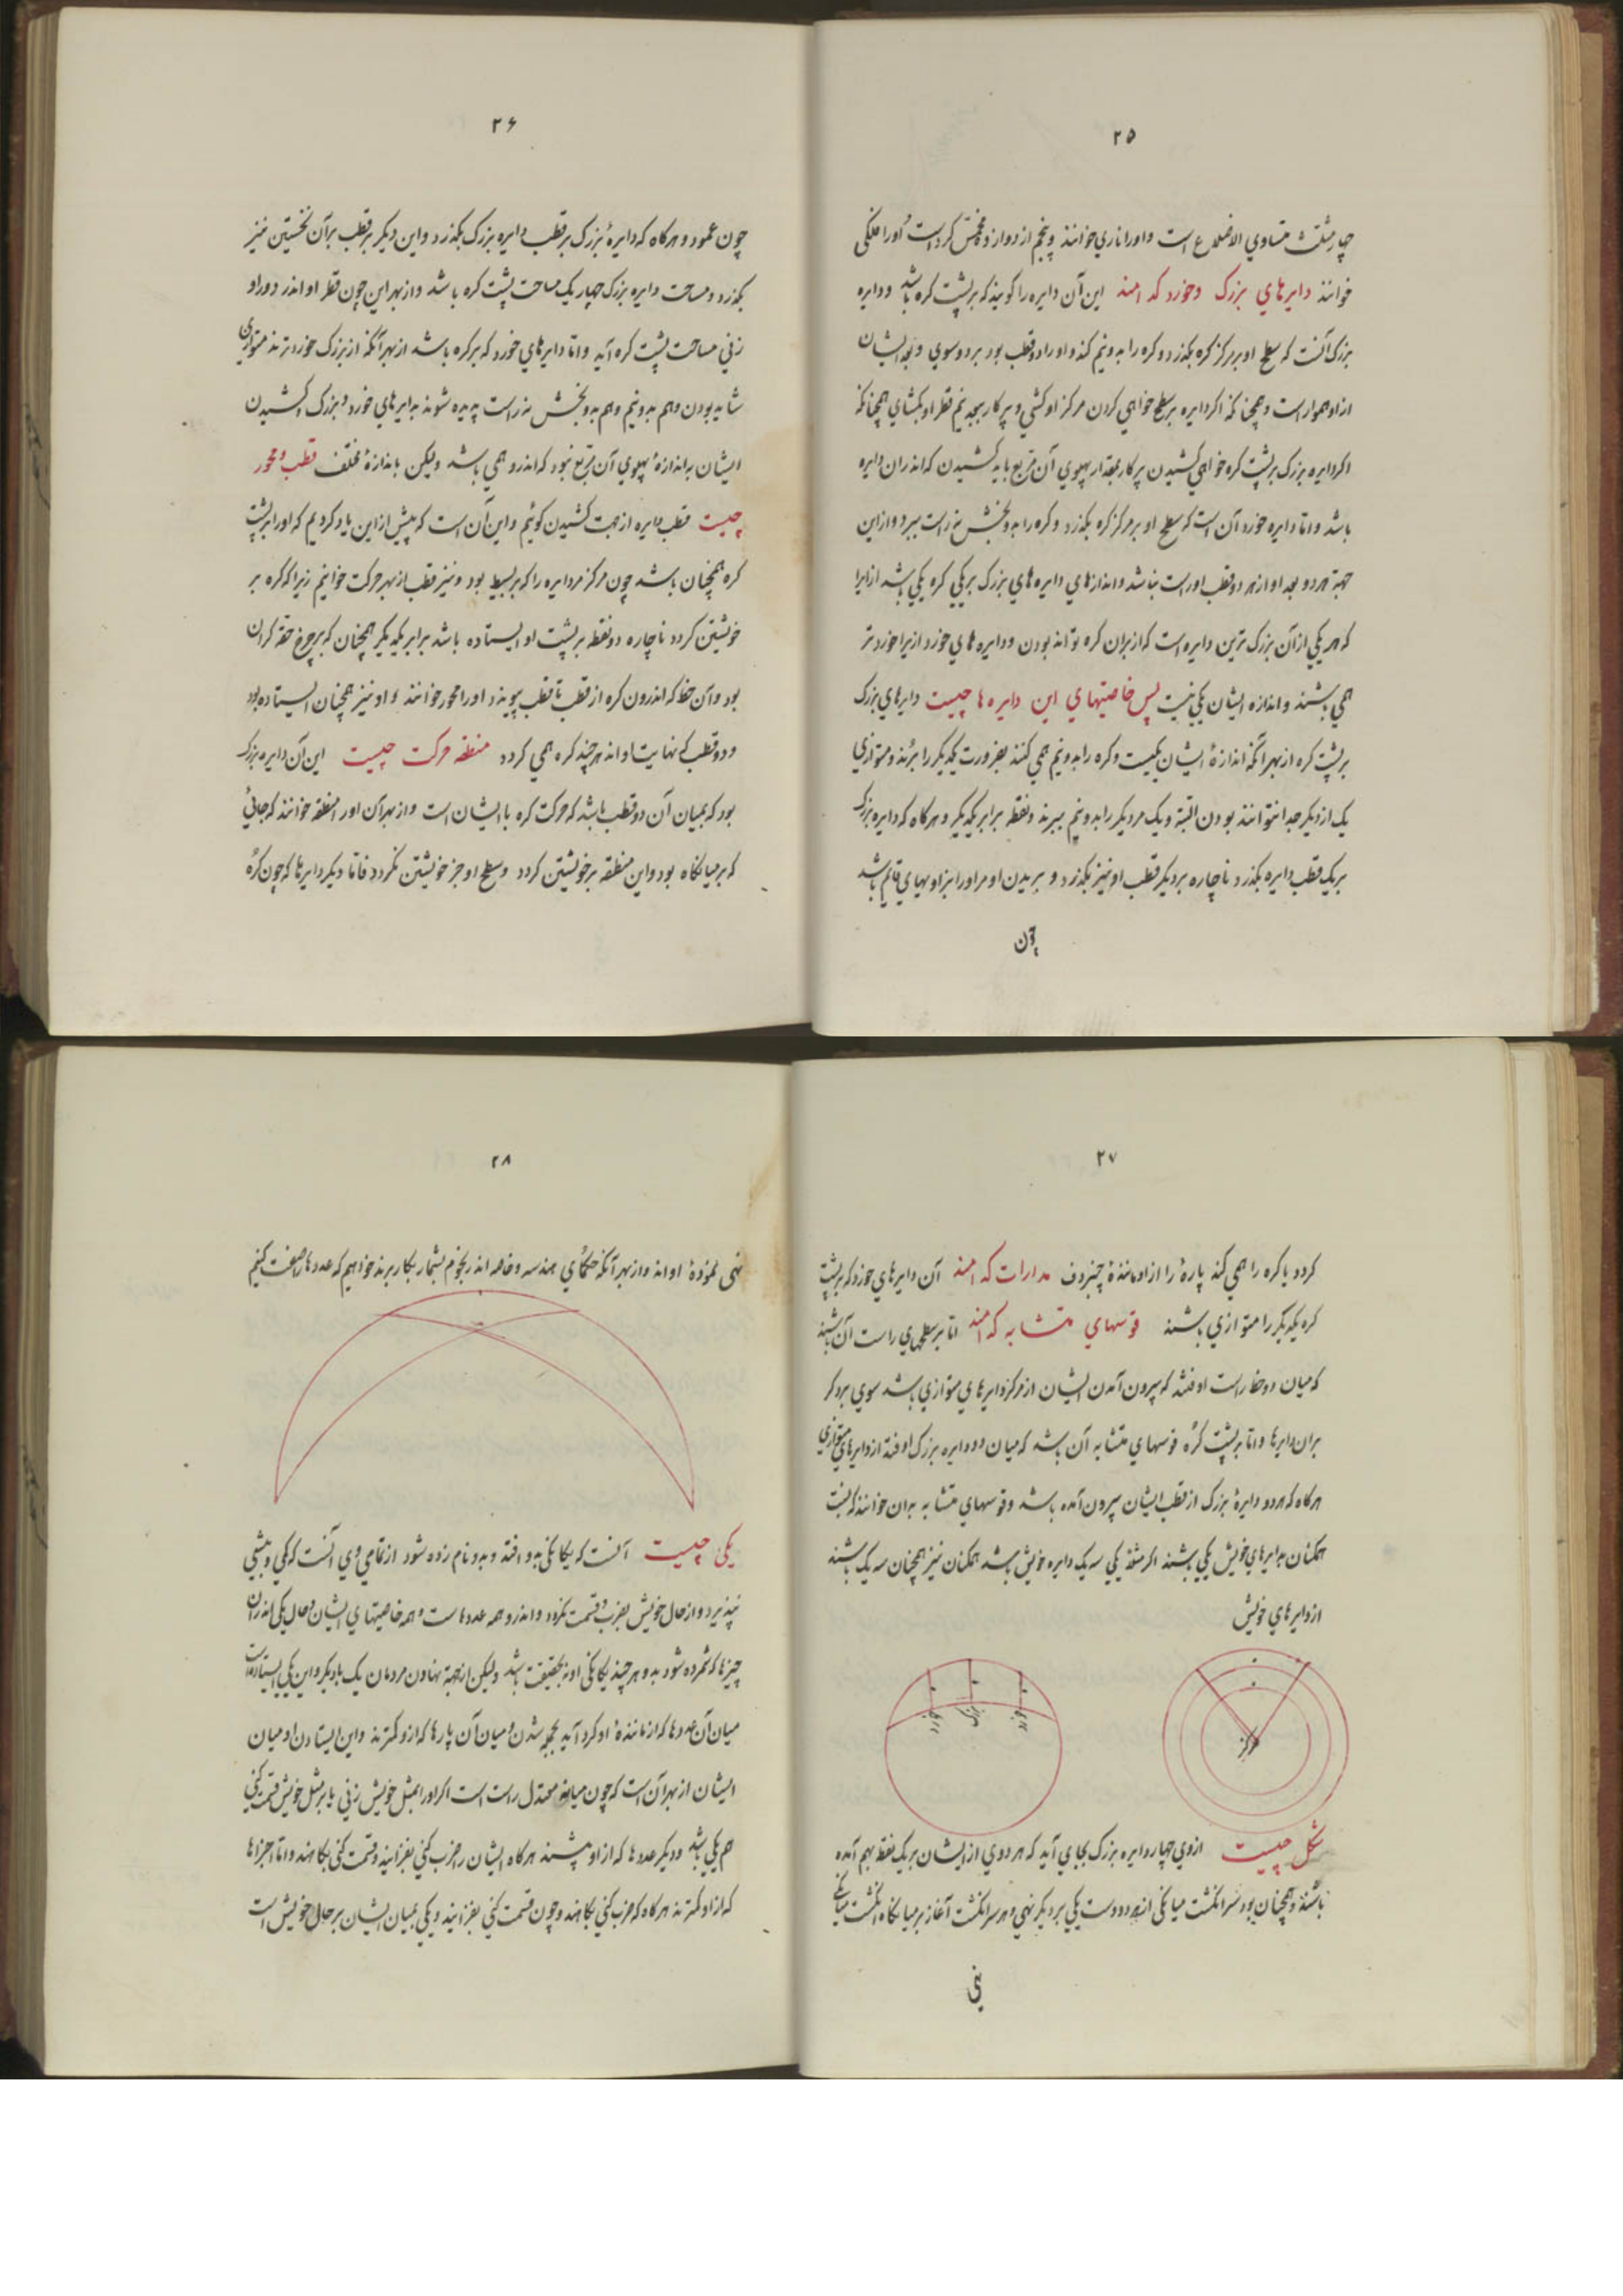 ۲۵
چهار مثلث متساوي الاضلاع است واورا ناري خوانند وپنجم از دوازده مخمّس کرداست اورا فلکی
خوانند دایرهاي بزرک وخورد کدامند این آن دایره را کویند که بر پشت کره باشد ودایره
بزرک آنست که سطح او بر مرکز کره بکذرد وکره را بدونیم کند واورا دو قطب بود بر دو سوي وبعد ایشان
ازاو هموار است وهمچنانکه اکر دایره بر سطح خواهی کردن مرکز او کشی وپرکار ببعد نیم قطر او بکشاي همچنانکه
اکر دایره بزرک بر پشت کره خواهي کشیدن پرکار بمقدار پهلوي آن مربع باید کشیدن که اندران دایره
باشد وامّا دایره خورد آن است که سطح او بر مرکز کره بکذرد وکره را بدو بخش نه راست ببرد وازاین
جهة هر دو بعد او از هر دو قطب او راست نباشد واندازهاي دایره هاي بزرک بر یکي کره یکي باشد ازیرا
که هر یکي ازآن بزرک ترین دایره است که از بران کره تواند بودن ودایره هاي خورد ازیرا خورد تر
همي باشند واندازه ایشان یکي نیست پس خاصیتهاي این دایره ها چیست دایرهاي بزرک
بر پشت کره از بهر آنکه اندازهٔ ایشان یکیست وکره را بدونیم همي کنند بضرورت یکدیکر را برند ومتوازي
یک از دیکر جدا نتوانند بودن البتة ویک مر دیکر را بدونیم ببرند ونقطه برابر یکدیکر وهرکاه که دایره بزرک
بر یک قطب دایره بکذرد ناچاره بر دیکر قطب او نیز بکذرد وبریدن او مر اورا بزاویهاي قایم باشد
چون
۲۶
چون عمود وهرکاه که دایرهٔ بزرک بر قطب دایره بزرک بکذرد واین دیکر بر قطب برآن نخستین نیز
بکذرد ومساحت دایره بزرک چهار یک مساحت پشت کره باشد وازبهر این چون قطر او اندر دور او
زني مساحت پشت کره آید وامّا دایرهاي خورد که بر کره باشد ازبهر آنکه از بزرک خوردترند متوازي
شاید بودن وهم بدونیم وهم بدو بخش نه راست بریده شوند بدایرهاي خورد وبزرک کشیدن
ایشان باندازهٔ پهلوي آن مربع نبود که اندرو همي باشد ولیکن باندازهٔ مختلف قطب ومحور
چیست قطب دایره ازجهت کشیدن کوئیم واین آن است که پیش ازاین یاد کردیم که اورا بر پشت
کره همچنان باشد چون مرکز مر دایره را که بر بسیط بود ونیز قطب ازبهر حرکت خوانیم زیرا که کره بر
خویشتن کردد ناچاره دو نقطه بر پشت او ایستاده باشد برابر یکدیکر همچنان که بر چرخ حقه کران
بود وآن خط که اندرون کره از قطب تا قطب پیوندد اورا محور خوانند واو نیز همچنان ایستاده بود
ودو قطب کی نهایت اواند هرچند کره همي کردد منطقه حرکت چیست این آن دایره بزرک
بود که بمیان آن دو قطب باشد که حرکت کره با ایشان است وازبهر آن اورا منطقه خوانند که جائي
که بر میانکاه بود واین منطقه بر خویشتن کردد وسطح او جز خویشتن نکردد فامّا دیکر دایرها که چون کره
۲۷
کردد یا کره را همي کند پارهٔ را از او مانندهٔ چنبر دف مدارات کدامند آن دایرهاي خورد که بر پشت
کره یکدیکر را متوازي باشند قوسهاي متشابه کدامند امّا بر سطحهاي راست آن باشند
که میان دو خط راست اوفتند که بیرون آمدن ایشان از مرکز دایرهاي متوازي باشد سوي بر دکر
بران دایرها وامّا بر پشت کره قوسهاي متشابه آن باشد که میان دو دایره بزرک اوفتد از دایرهاي متوازي
هرکاه که هر دو دایرهٔ بزرک از قطب ایشان بیرون آمده باشد وقوسهاي متشابه بدان خوانند که نسبت
همکنان بدایرهاي خویش یکي باشند اکر مثل یکي سه یک دایره خویش باشد همکنان نیز همچنان سه یک باشند
از دایرهاي خویش
مرکز
شکل چیست ازوي چهار دایره بزرک بجاي آید که هر دوي از ایشان بر یک نقطه بهم آمده
باشند وهمچنان بود سر انکشت میانکی از هر دو دست یکي بر دیکر نهي وهر سر انکشت آغاز بر میانکاه انکشت میانکي
نهی
۲۸
نهی نمودهٔ اواند وازبهر آنکه حکماي هندسه وخاصه اندر نجوم شمار بکار برند خواهیم که عددها صفت کنیم
یکی چیست آنست که یکانکی بدو افتد وبدو نام زده شود ازتمامي وي آنست که کمي وبیشي
نپذیرد وازحال خویش بضرب وقسمت نکردد واندرو همه عددهاست وهمه خاصیتهاي ایشان وحال یکي اندران
چیزها که شمرده شود بدو هرچند یکانکی او نه بحقیقت باشد ولیکن ازجهة نهادن مردمان یک بادیکر واین یکي ایستاده است
میان آن عددها که از مانندهٔ او کرد آید بجمله شدن ومیان آن پارها که ازو کمترند واین ایستادن او میان
ایشان ازبهر آن است که چون میانه معتدل راست است اکر اورا بمثل خویش زني یا بر مثل خویش قسمت کني
هم یکي باشد ودیکر عددها که از او بیشند هرکاه ایشان را ضرب کني بفزایند وقسمت کنی بکاهند وامّا جزءها
که از او کمترند هرکاه که ضرب کني بکاهند وچون قسمت کنی بفزایند ویکي بمیان ایشان بر حال خویش است